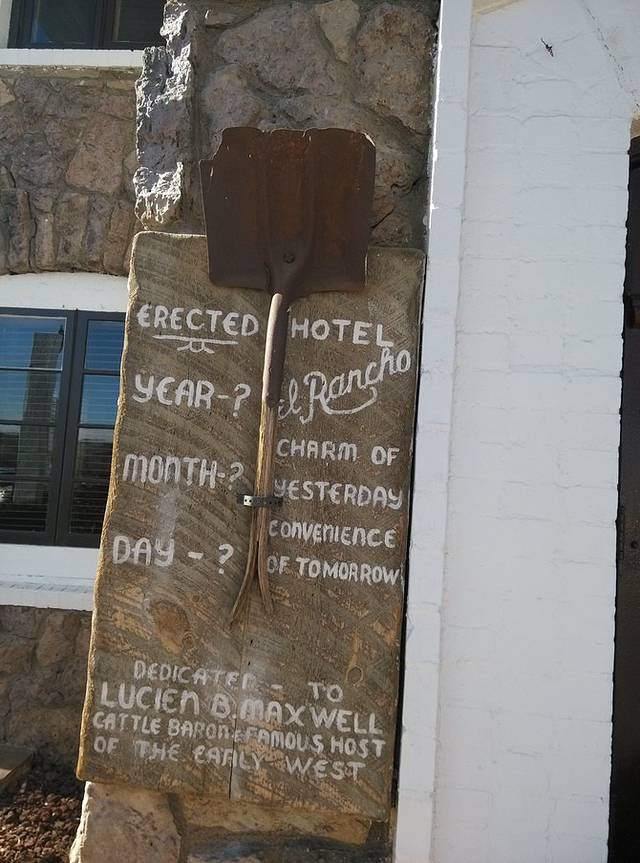 ERECTED
YEAR-?
MONTH-?
DAY - ?
HOTEL
el Rancho
CHARM OF
YESTERDAY
CONVENIENCE
OF TOMORROW
DEDICATED - TO
LUCIEN B MAXWELL
CATTLE BARON & FAMOUS HOST
OF THE EARLY WEST